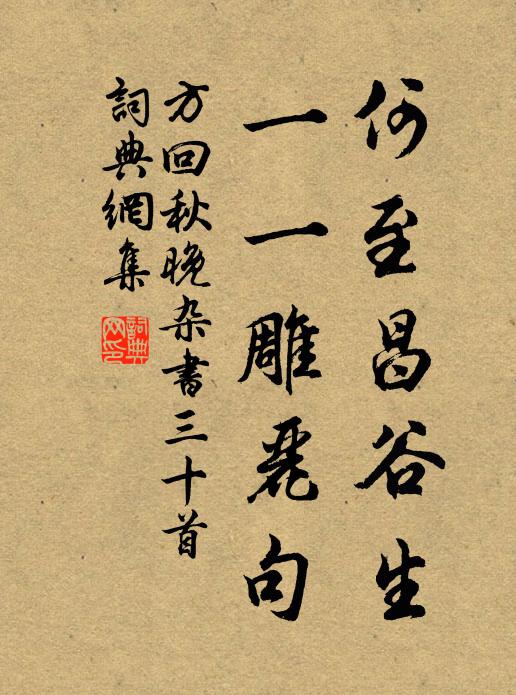 何至昌谷生
一一雕麗句
方回秋晚杂書三十首
詞典網集
詞典网印